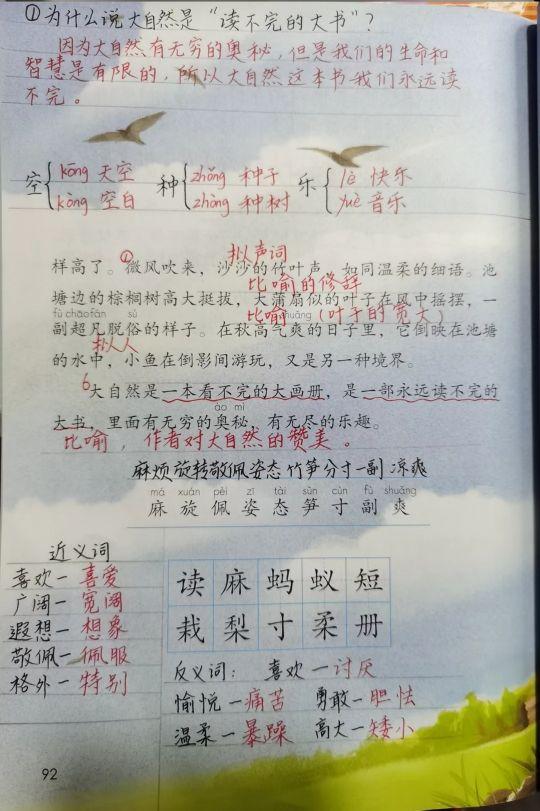 ①为什么说大自然是“读不完的大书”？
因为大自然有无穷的奥秘，但是我们的生命和
智慧是有限的，所以大自然这本书我们永远读
不完。
空 kōng 天空 种 zhǒng 种子 乐 lè 快乐
kòng 空白 zhòng 种树 yuè 音乐
拟声词
样高了。①微风吹来，沙沙的竹叶声，如同温柔的细语。池
比喻的修辞
塘边的棕榈树高大挺拔，大蒲扇似的叶子在风中摇摆，一
fù chāo fán sú shuǎng
比喻（叶子的宽大）
副超凡脱俗的样子。在秋高气爽的日子里，它倒映在池塘
拟人
的水中，小鱼在倒影间游玩，又是另一种境界。
6大自然是一本看不完的大画册，是一部永远读不完的
ào mì
大书，里面有无穷的奥秘，有无尽的乐趣。
比喻，作者对大自然的赞美。
麻烦旋转敬佩姿态竹笋分寸一副凉爽
má xuán pèi zī tài sǔn cùn fù shuǎng
麻 旋 佩 姿 态 笋 寸 副 爽
近义词
喜欢—喜爱
广阔—宽阔
遐想—想象
敬佩—佩服
格外—特别
读 麻 蚂 蚁 短
栽 梨 寸 柔 册
反义词： 喜欢—讨厌
愉悦—痛苦 勇敢—胆怯
温柔—暴躁 高大—矮小
92